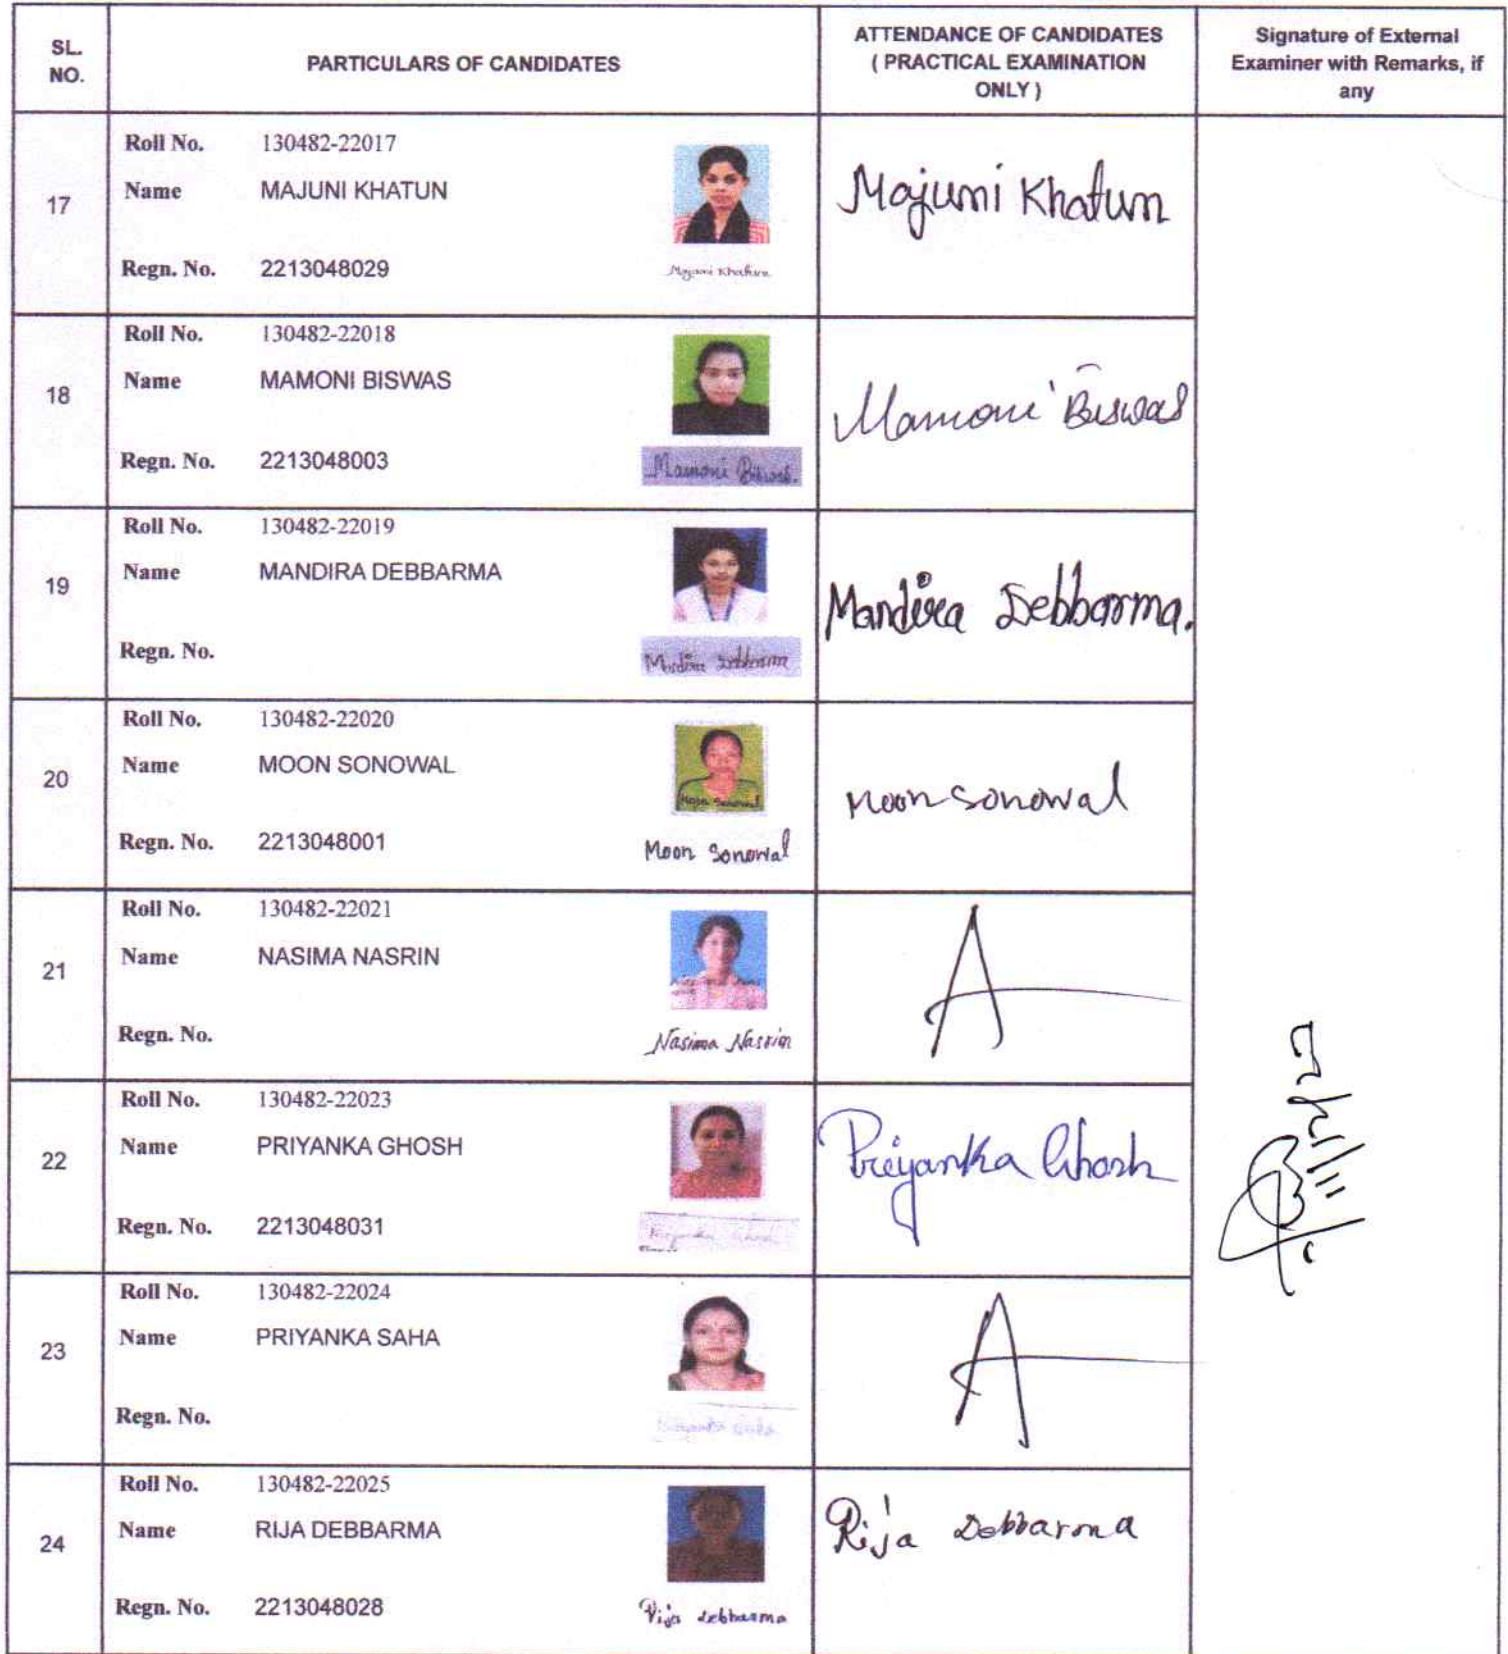 SL. NO.
PARTICULARS OF CANDIDATES
ATTENDANCE OF CANDIDATES
( PRACTICAL EXAMINATION
ONLY )
Signature of External
Examiner with Remarks, if
any
17
Roll No. 130482-22017
Name MAJUNI KHATUN
Regn. No. 2213048029
Majuni Khatun
Majuni Khatun
18
Roll No. 130482-22018
Name MAMONI BISWAS
Regn. No. 2213048003
Mamoni Biswas.
Mamoni Biswas
19
Roll No. 130482-22019
Name MANDIRA DEBBARMA
Regn. No.
Mandira Debbarma
Mandira Debbarma.
20
Roll No. 130482-22020
Name MOON SONOWAL
Regn. No. 2213048001
Moon Sonowal
Moon Sonowal
Moon Sonowal
21
Roll No. 130482-22021
Name NASIMA NASRIN
Regn. No.
Nasima Nasrin
A
22
Roll No. 130482-22023
Name PRIYANKA GHOSH
Regn. No. 2213048031
Priyanka Ghosh
Priyanka Ghosh
23
Roll No. 130482-22024
Name PRIYANKA SAHA
Regn. No.
Priyanka Saha
A
24
Roll No. 130482-22025
Name RIJA DEBBARMA
Regn. No. 2213048028
Rija Debbarma
Rija Debbarma